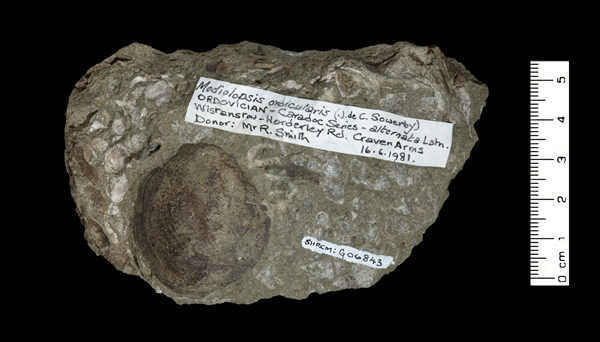 Modiolopsis orbicularis (J. de C. Sowerby)
ORDOVICIAN - Caradoc Series - alternata Lstn.
Wistanstow - Horderley Rd. Craven Arms
Donor: Mr R. Smith 16.6.1981.
SHRCM: G06843
5
4
3
2
1
0 cm